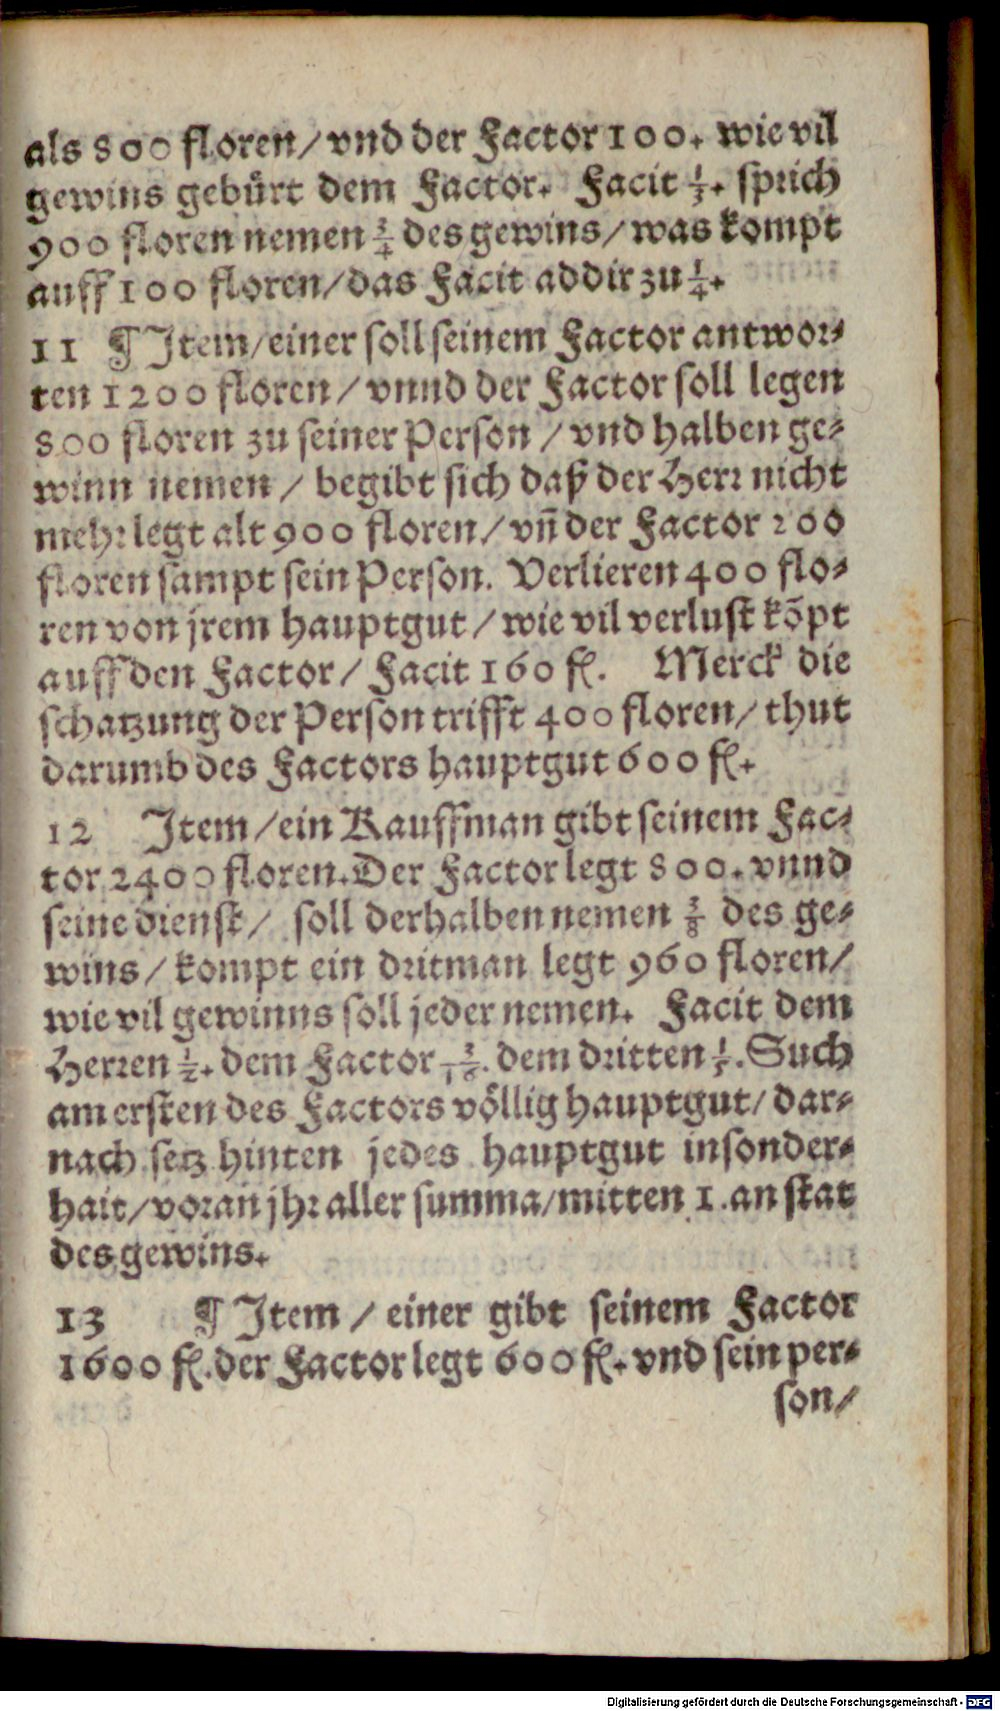 als 800 floren / vnd der Factor 100. wie vil
gewins gebürt dem Factor. Facit 1/3. sprich
900 floren nemen 3/4 des gewins / was kompt
auff 100 floren / das Facit addir zu 1/4.
11 ¶ Item / einer soll seinem Factor antwor-
ten 1200 floren / vnnd der Factor soll legen
800 floren zu seiner Person / vnd halben ge-
winn nemen / begibt sich daß der Herr nicht
mehr legt alt 900 floren / vñ der Factor 200
floren sampt sein Person. Verlieren 400 flo-
ren von jrem hauptgut / wie vil verlust kõpt
auff den Factor / Facit 160 fl. Merck die
schatzung der Person trifft 400 floren / thut
darumb des Factors hauptgut 600 fl.
12 Item / ein Kauffman gibt seinem Fac-
tor 2400 floren. Der Factor legt 800. vnnd
seine dienst / soll derhalben nemen 3/8 des ge-
wins / kompt ein dritman legt 960 floren /
wie vil gewinns soll jeder nemen. Facit dem
Herren 1/2. dem Factor 3/10. dem dritten 1/5. Such
am ersten des Factors völlig hauptgut / dar-
nach setz hinten jedes hauptgut insonder-
hait / voran jhr aller summa / mitten 1. an stat
des gewins.
13 ¶ Item / einer gibt seinem Factor
1600 fl. der Factor legt 600 fl. vnd sein per-
son /
Digitalisierung gefördert durch die Deutsche Forschungsgemeinschaft - DFG